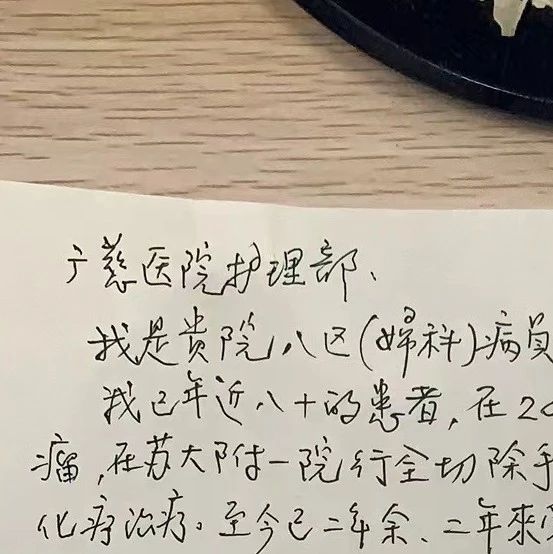 广慈医院护理部、
我是贵院八区(婦科)病員
我已年近八十的患者,在20
瘤,在苏大附一院行全切除手
化疗治疗。至今已二年余、二年來